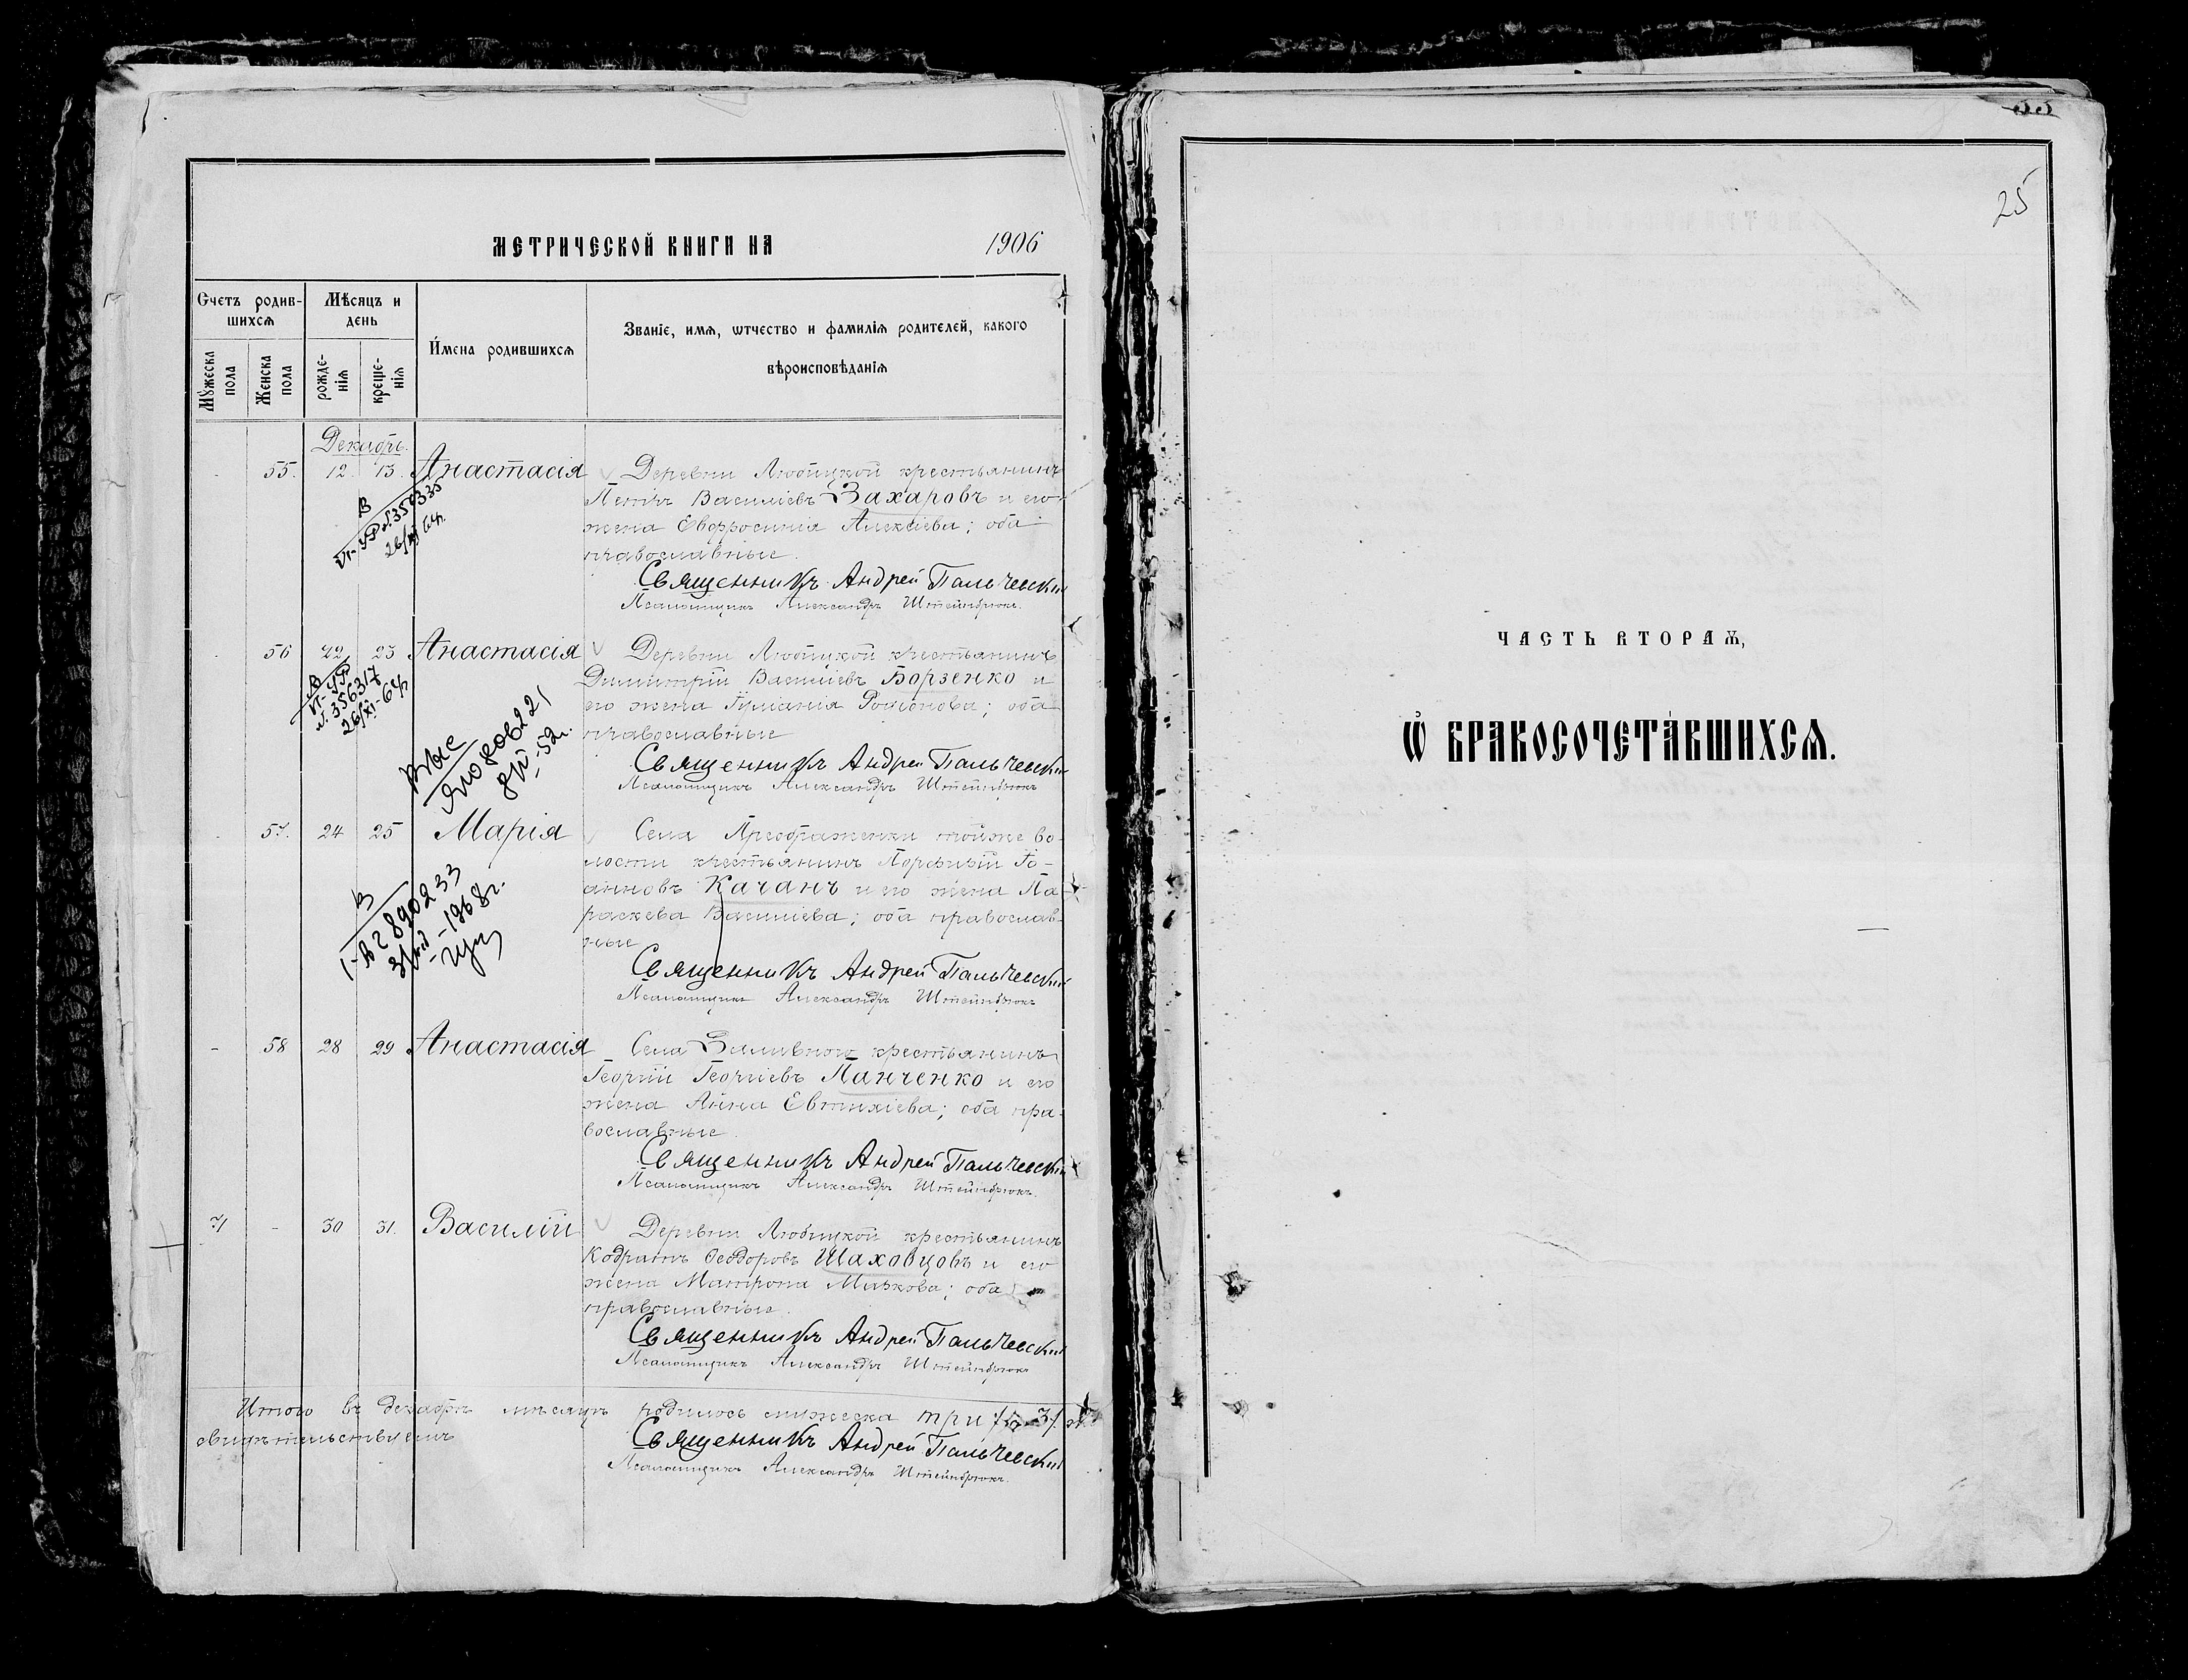 МЕТРИЧЕСКОЙ КНИГИ НА 1906
Счетъ родив-
шихсѧ
Мѣсяцъ и
день
Имена родившихсѧ
Званіе, имѧ, ѡтчество и фамиліѧ родителей, какого
вѣроисповѣданіѧ
Мꙋжеска
пола
Женска
пола
рожде-
нія
креще-
нія
Декабрь.
55. 12. 13. Анастасія Деревни Любицкой крестьянинъ
Петръ Василіевъ Захаровъ и его
жена Евфросинія Алексіева; оба
православные.
Священникъ Андрей Пальчевскій
Псаломщикъ Александръ Штейнбрюкъ.
В
VI-УР №359335
26/XI 64г.
56 22 23 Анастасія Деревни Любицкой крестьянинъ
Димитрій Василіевъ Борзенко и
его жена Іуліанія Родіонова; оба
православные
Священникъ Андрей Пальчевскій
Псаломщикъ Александръ Штейнбрюкъ
В
VI-УР
№ 356317
26/XI-64г
57. 24 25 Марія Села Преображенки тойже во-
лости крестьянинъ Порфирій Іо-
анновъ Качанъ и его жена Па-
раскева Василіева; оба православ-
ные
Священникъ Андрей Пальчевскій
Псаломщикъ Александръ Штейнбрюкъ
В
- 1968г.
- 58 28 29 Анастасія Села Заливного крестьянинъ
Георгій Георгіевъ Панченко и его
жена Анна Евтихіева; оба пра-
вославные.
Священникъ Андрей Пальчевскій
Псаломщикъ Александръ Штейнбрюкъ.
71 - 30 31. Василій Деревни Любицкой крестьянинъ
Кодратъ Ѳеодоровъ Шаховцовъ и его
жена Матрона Маркова; оба
православные.
Священникъ Андрей Пальчевскій
Псаломщикъ Александръ Штейнбрюкъ
Итого въ декабрѣ мѣсяцѣ родилось мужеска три
свидѣтельствуемъ
Священникъ Андрей Пальчевскій
Псаломщикъ Александръ Штейнбрюкъ.
25
ЧАСТЬ ВТОРАѦ,
Ѡ БРАКОСОЧЕТА́ВШИХСѦ.